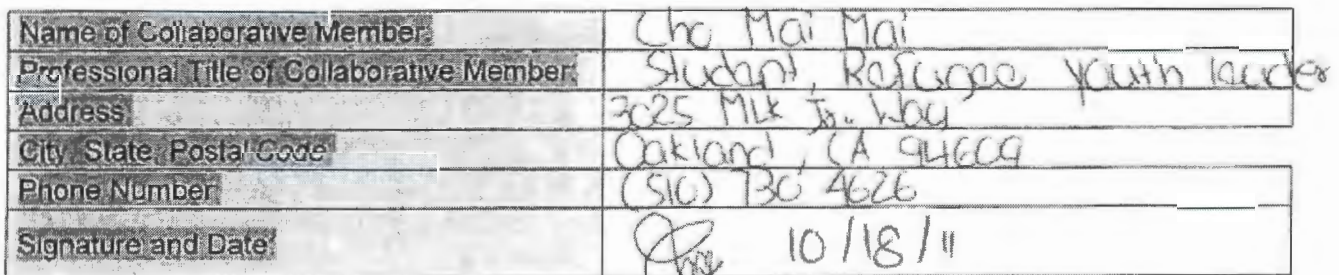 Name of Collaborative Member: Cho Mai Mai
Professional Title of Collaborative Member: Student, Refugee youth leader
Address 3025 MLK Jr. Way
City, State, Postal Code Oakland, CA 94609
Phone Number (510) 730 4626
Signature and Date: 10/18/11